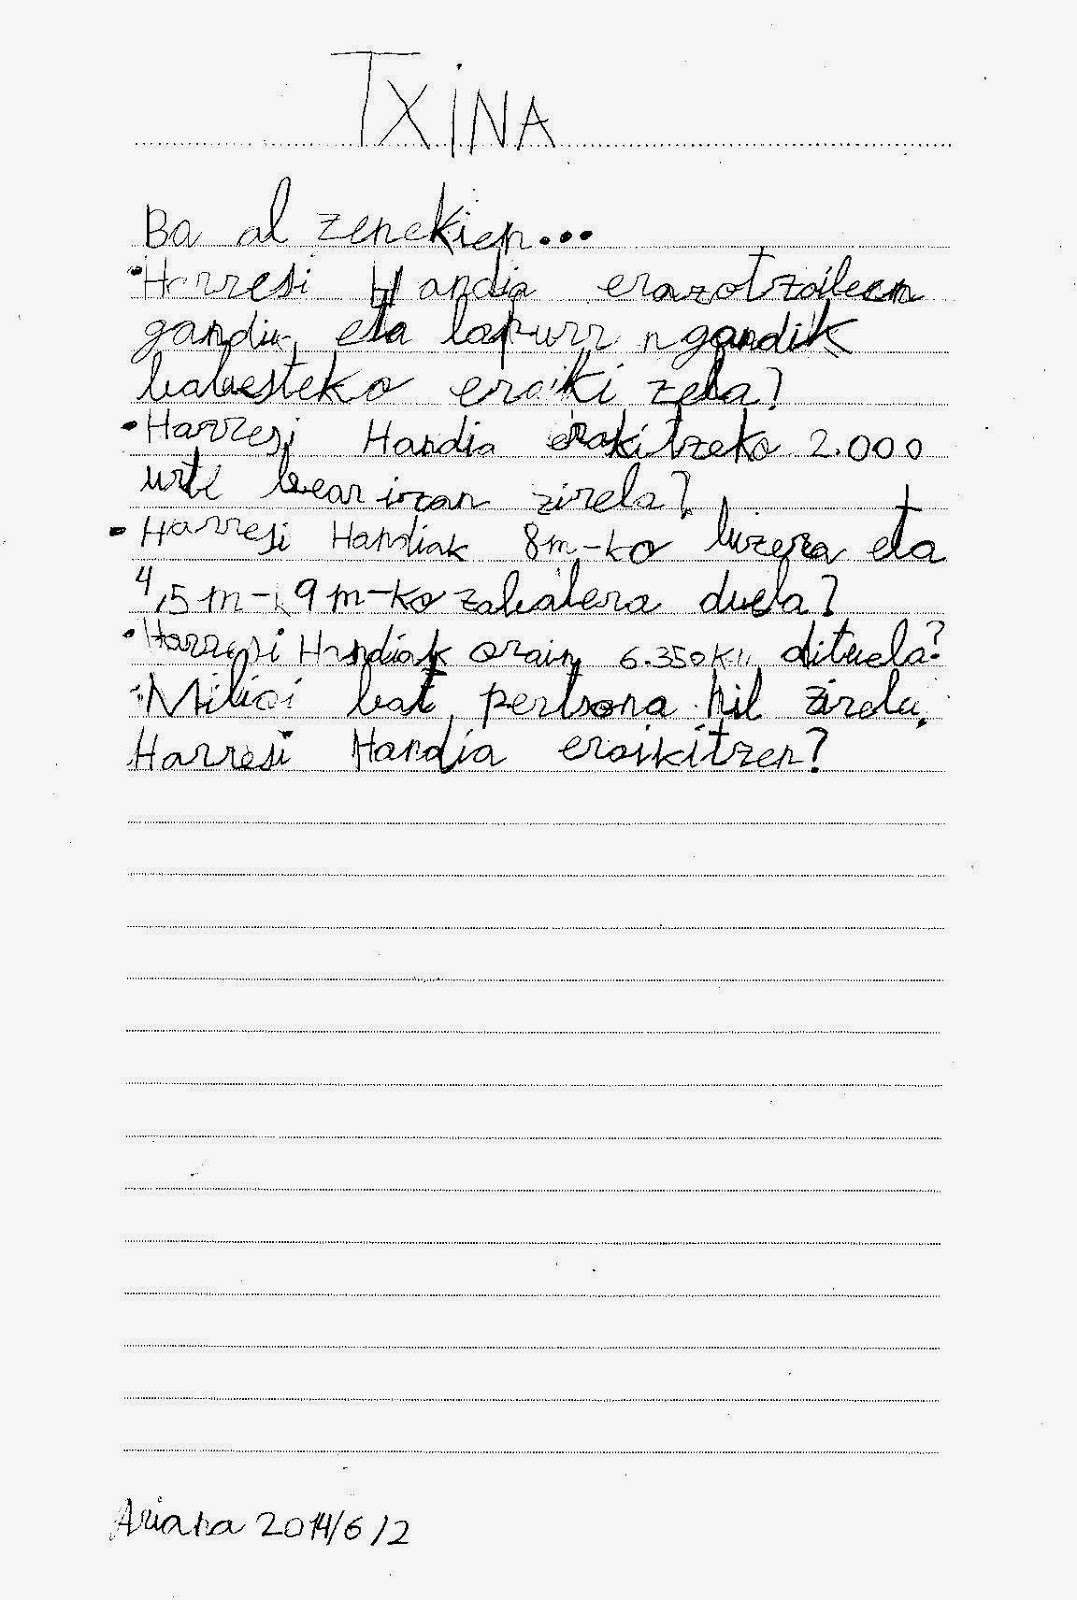 TXiNA
Ba al zenekien...
•Harresi Handia erazotzaileen
gandik eta lapurr ngandik
babesteko eraiki zela?
•Harresi Handia erakitzeko 2.000
urte bear izan zirela?
•Harresi Handiak 8m-ko luzera eta
4,5m-k 9m-ko zabalera duela?
•Harresi Handiak orain 6.350km dituela?
•Milioi bat pertsona hil zirela
Harresi Handia eraikitzen?
Ariana 2014/6/2